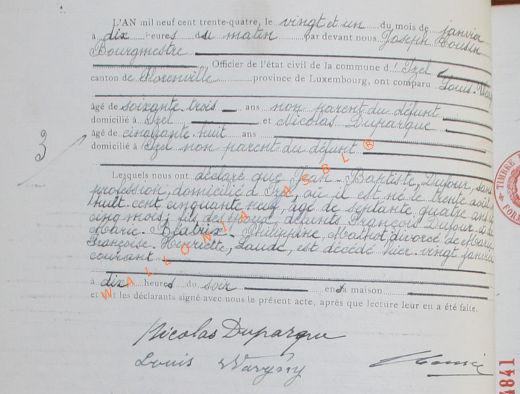 L'AN mil neuf cent trente-quatre, le vingt et un du mois de janvier
à dix heures du matin par devant nous Joseph Rousin
Bourgmestre
Officier de l'état civil de la commune d' Izel
canton de Florenville province de Luxembourg, ont comparu Louis
âgé de soixante trois ans non parent du défunt
domicilié à Izel et Nicolas Duparque
âgé de cinquante huit ans
domicilié à Izel non parent du défunt
3
Lesquels nous ont déclaré que Jean-Baptiste, Dufour, sans
profession, domicilié à Izel, où il est né le trente août
huit cent cinquante neuf, âgé de septante quatre ans
cinq mois, fils de défunts François Dufour, et de
Marie Béatrix Philippine, Mathot, divorcé de Marie
Françoise Henriette, Laude, est décédé hier vingt janvier
courant
à dix heures du soir en sa maison
et ont les déclarants signé avec nous le présent acte, après que lecture leur en a été faite.
WALLONIA ASBL ®
Nicolas Duparque
Louis Wavigny
TIMBRE
4841